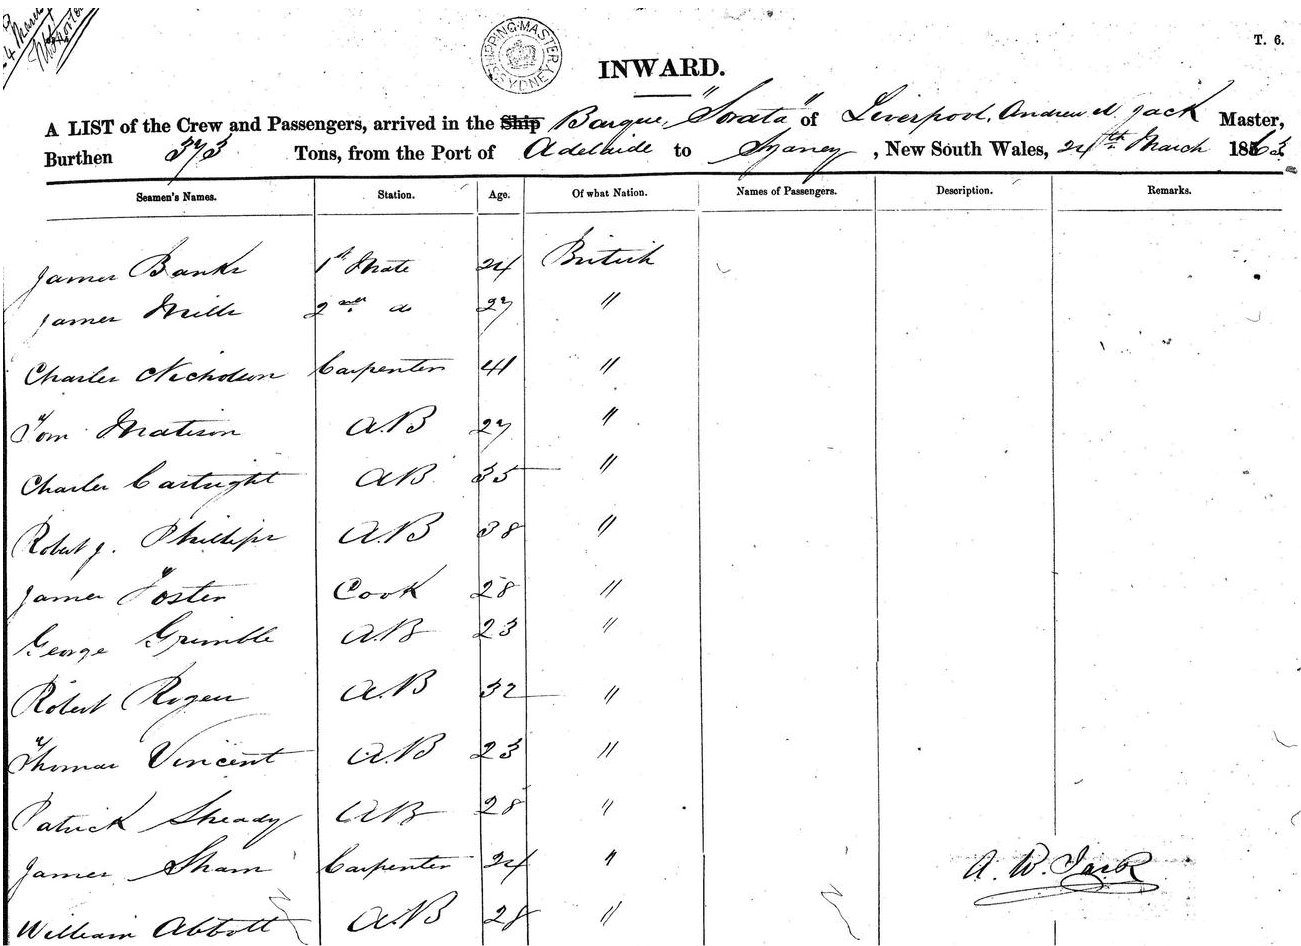 4 March
SHIPPING MASTER SYDNEY
T. 6.
INWARD.
A LIST of the Crew and Passengers, arrived in the Ship Barque, "Sorata" of Liverpool, Andrew Jack Master,
Burthen 373 Tons, from the Port of Adelaide to Sydney, New South Wales, 24th March 1863
Seamen's Names. Station. Age. Of what Nation. Names of Passengers. Description. Remarks.
James Banks 1st Mate 24 British
James Mills 2nd do 27 "
Charles Nicholson Carpenter 41 "
Tom Matison A.B 27 "
Charles Cartright AB 35 "
Robert J. Phillips A.B 38 "
James Foster Cook 28 "
George Grimble A.B 23 "
Robert Rogers A.B 32 "
Thomas Vincent A.B 23 "
Patrick Sheady AB 28 "
James Sham Carpenter 24 "
A. W. Jack
William Abbott A.B 28 "